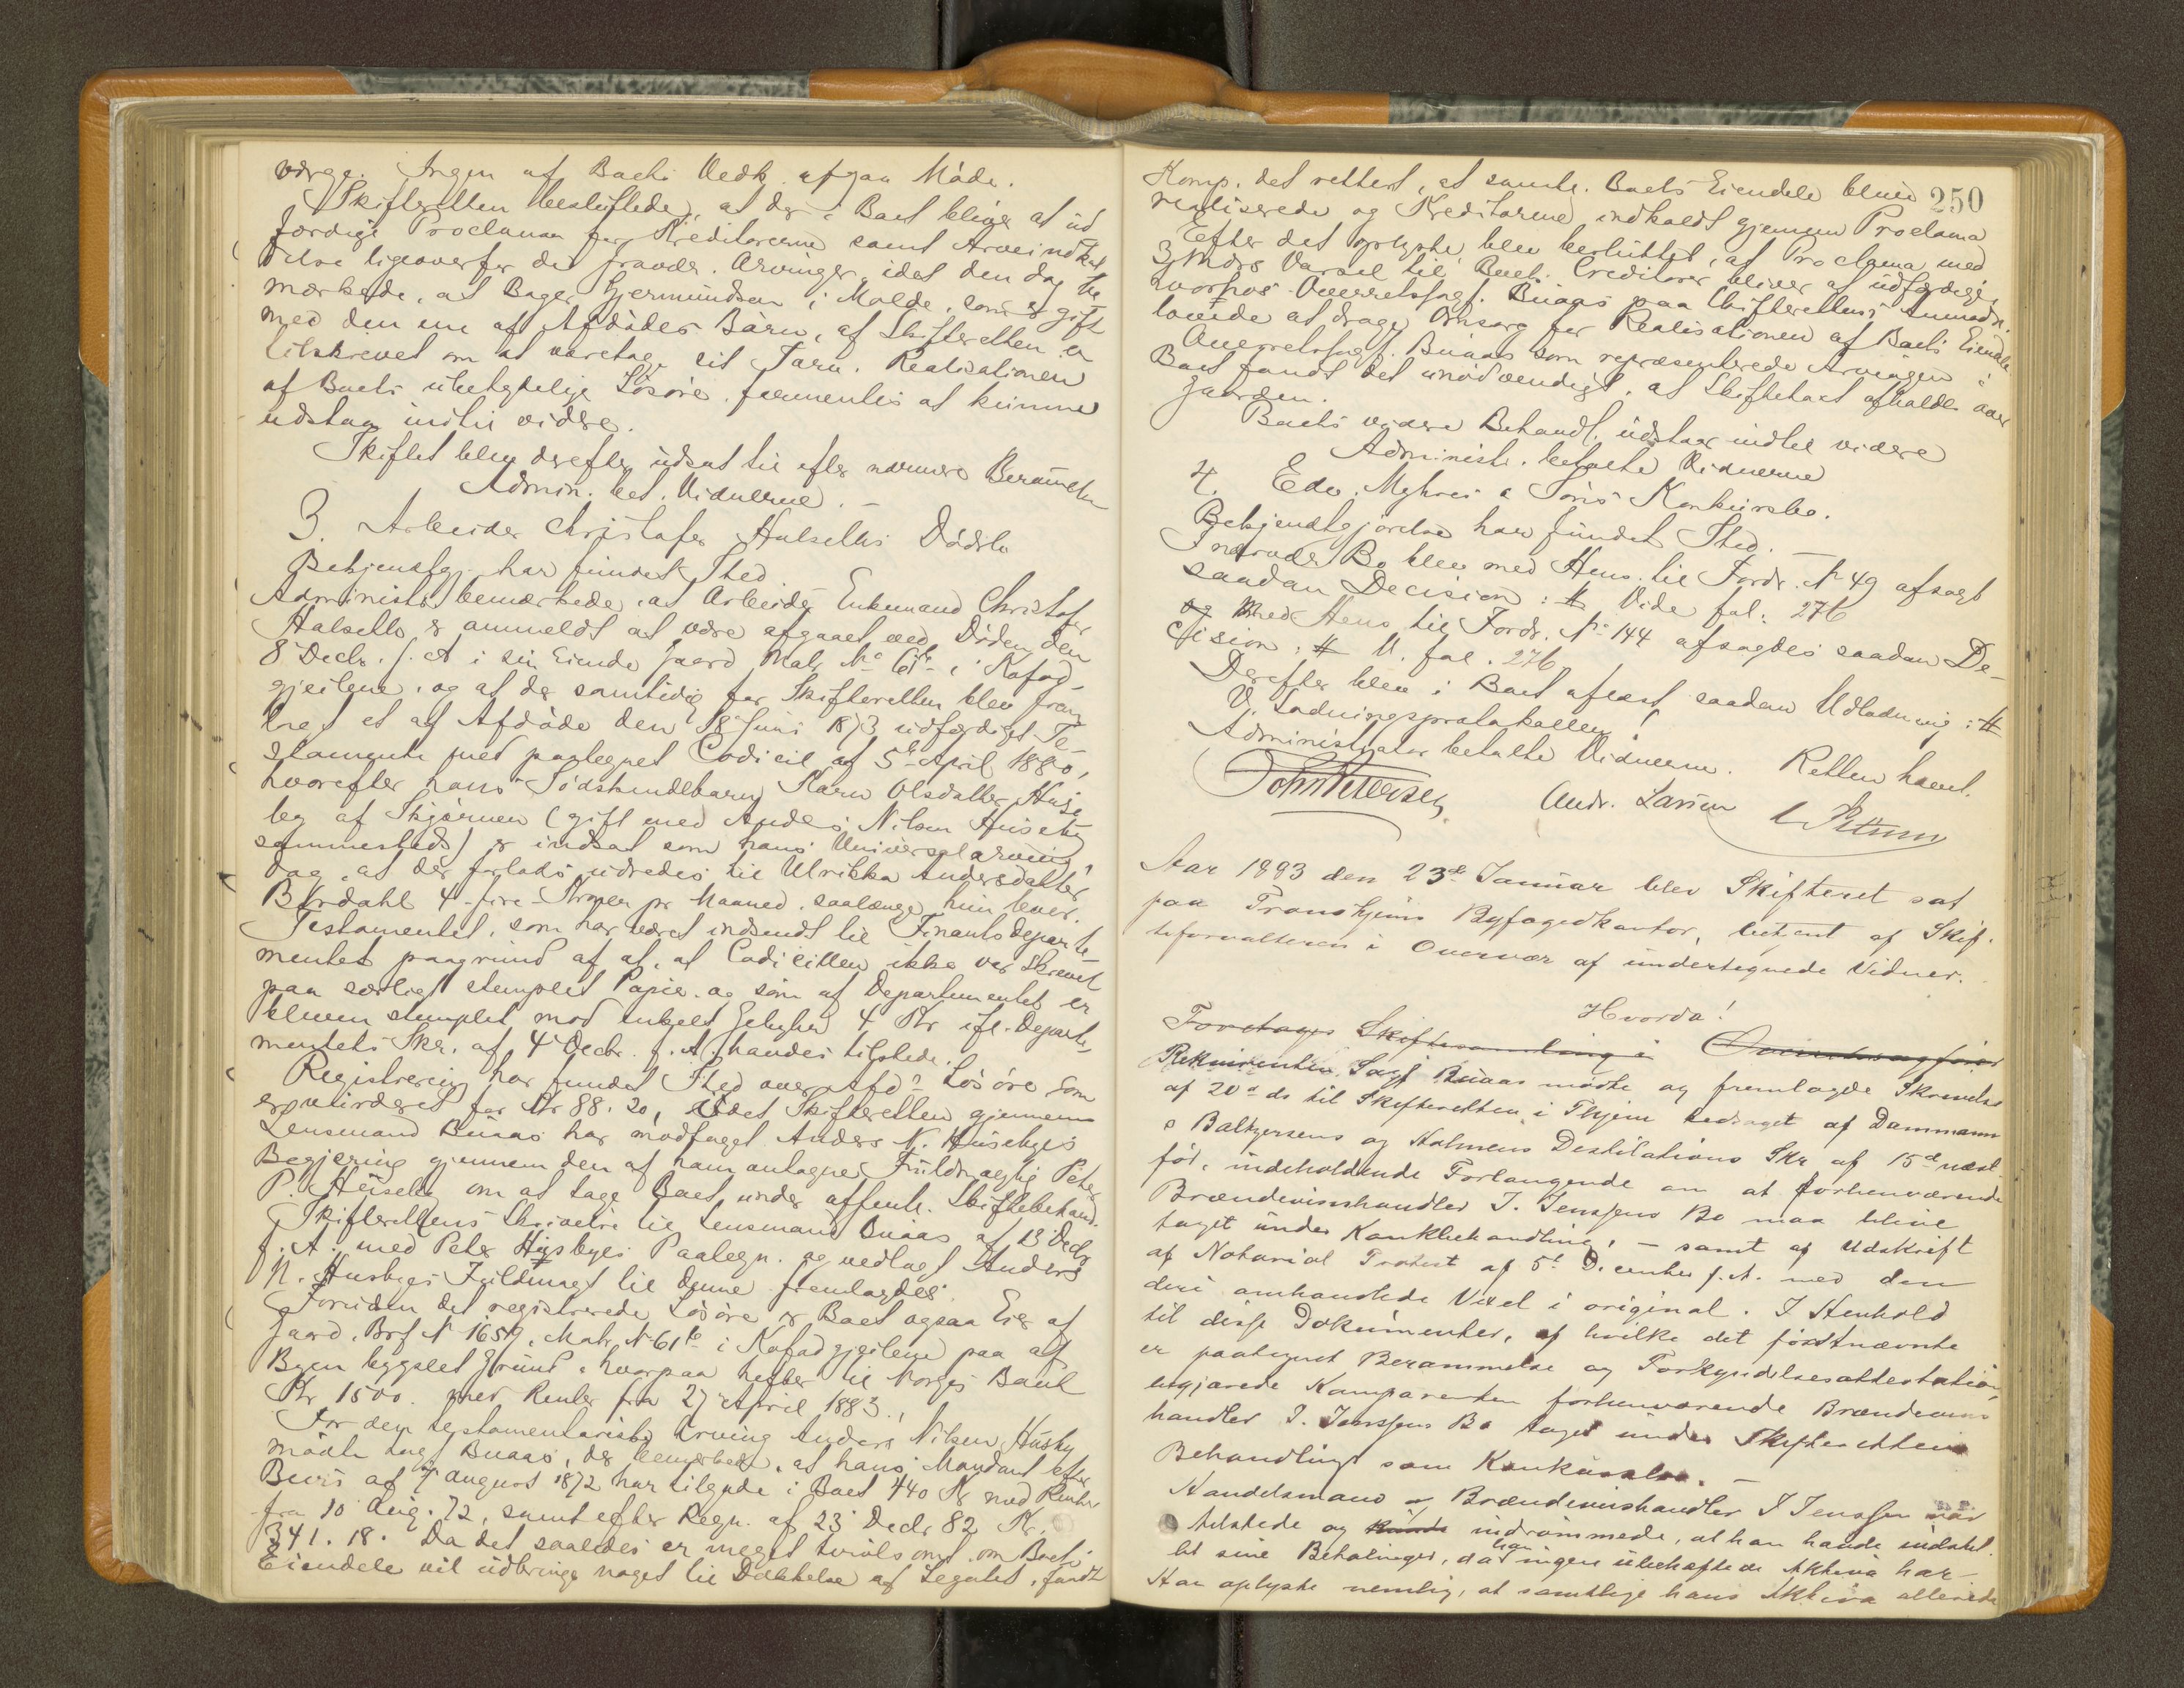 værge. Ingen af Boets Vedk. afgaa Møde.
Skifteretten besluttede, at der i Boet bliver at ud
færdige Proclama for Kreditorerne samt Arveindkal
delse ligeoverfor de fravær. Arvinger, idet den dog be
mærkede, at Bager Gjermundsen i Molde, som er gift
med den ene af Afdødes Børn, af Skifteretten er
tilskrevet om at varetage sit Tarv. Realisationen
af Boets ubetydelige Løsøre formentes at kunne
udstaa indtil videre.
Skiftet blev derefter udsat til efter nærmere Berammelse
Admin. bet. Vidnerne. –
3. Arbeider Christofer Halsetlis Dødsbo
Bekjendtgj. har fundet Sted
Administr. bemærkede, at Arbeider Enkemand Christofer
Halsetli er anmeldt at være afgaaet ved Døden den
8 Decb. f. A i sin Eiende Gaard Matr. No 61b i Kofod-
gjeilene, og at der samtidig for Skifteretten blev frem
lagt et af Afdøde den 18 Juni 1873 udfærdiget Te-
stamente med paategnet Codicil af 5te April 1880,
hvorefter hans Sødskendebarn Karen Olsdatter Huse
by af Skjørnen (gift med Anders Nilsen Huseby
sammesteds) er indsat som hans Universalarving,
dog, at der forlods udredes til Ulrikka Andersdatter
Bårdahl 4 - fire - Kroner pr Maaned, saalænge hun lever.
Testamentet, som har været indsendt til Finantsdeparte-
mentet paagrund af at, at Codicillen ikke var skrevet
paa særligt stemplet Papir og som af Departementet er
bleven stemplet mod enkelt Gebyhr 4 Kr ifl. Departe-
mentets Skr. af 4 Decbr. f. A. havdes tilstede.
Registrering har fundet Sted over Afd's Løsøre som
er vurderet for Kr 88.20, idet Skifteretten gjennem
Lensmand Buaas har modtaget Anders N. Husebyes
Begjering gjennem den af ham antagne Fuldmægtig Peter
P. Huseby om at tage Boet under offentl. Skiftebehandl.
Skifterettens Skrivelse til Lensmand Buaas af 13 Decbr
f. A. med Peter Husbyes Paategn. og vedlagt Anders
N. Husbyes Fuldmagt til denne fremlagdes.
Foruden det registrerede Løsøre er Boet ogsaa Eier af
Gaard, Brf No 1659, Matr. No 61b i Kofodgjeilene paa af
Byen bygslet Grund, hvorpaa hefter til Norges Bank
Kr 1500 med Renter fra 27 April 1883.
For den testamentariske Arving Anders Nilsen Husby
mødte Sagf Buaas, der bemærkede, at hans Mandant efter
Bevis af 7 August 1872 har tilgode i Boet 440 Kr med Renter
fra 10 Aug. 72, samt efter Regn. af 23 Decbr 82 Kr.
341.18. Da det saaledes er meget tvivlsomt om Boets
Eiendele vil udbringe noget til Dækkelse af Legatet, fandt
250
Komp. det rettest, at samtl. Boets Eiendele blive
realiserede og Kreditorerne indkaldt gjennem Proclama
Efter det oplyste blev besluttet, at Proclama med
3 Mdrs Varsel til Boets Creditorer bliver at udfærdige,
hvorpos Overretssagf. Buaas paa Skifterettens Anmodn.
lovede at drage Omsorg for Realisationen af Boets Eiendele
Overretssagf. Buaas som repræsenterede Arvingen i
Boet fandt det unødvendigt, at Skiftetaxt afholdes over
Gaarden.
Boets videre Behandl. udstaar indtil videre
Administr. betalte Vidnerne
4. Edv. Myhres & Søns Konkursbo.
Bekjendtgjørelse har fundet Sted. —
I nærvær. Bo blev med Hens. til Fordr. No 49 afsagt
saadan Decision: # Vide fol: 276
og Med Hens til Fordr. No 144 afsagdes saadan De-
cision: # V. fol. 276
Derefter blev i Boet aflæst saadan Udlodning: #
V. Lodningsprotokollen!
Administrator betalte Vidnerne. Retten hævet.
John Petersen Andr. Larsen L Pettersen
Aar 1893 den 23de Januar blev Skifteret sat
paa Tronhjems Byfogedkontor, betjent af Skif-
teforvalteren i Overvær af undertegnede Vidner.
Hvorda!
Foretages Skiftesamling i Overretssagfører
Rekvirenten Sagf Buaas mødte og fremlagde Skrivelse
af 20de ds til Skifteretten i Thjem ledsaget af Dammann
& Baltzersens og Holmens Destilations Skr af 15de næst-
før, indeholdende Forlangende om at forhenværende
Brændevinshandler J. Jenssens Bo maa blive
taget under Konkbehandling, – samt af Udskrift
af Notarial Protest af 5te December f. A. med den
deri omhandlede Vexel i original. I Henhold
til disse Dokumenter, af hvilke det førstnævnte
er paategnet Berammelse og Forkyndelsesattestation,
begjærede Komparenten forhenværende Brændevins
handler J. Jenssens Bo taget under Skifterettens
Behandling som Konkursbo. —
Handelsmand og Brændevinshandler J Jenssen var
tilstede og indrømmede, at han havde indstil-
let sine Betalinger, da han ingen ubehæftede Aktiva har
Han oplyste nemlig, at samtlige hans Aktiva allerede